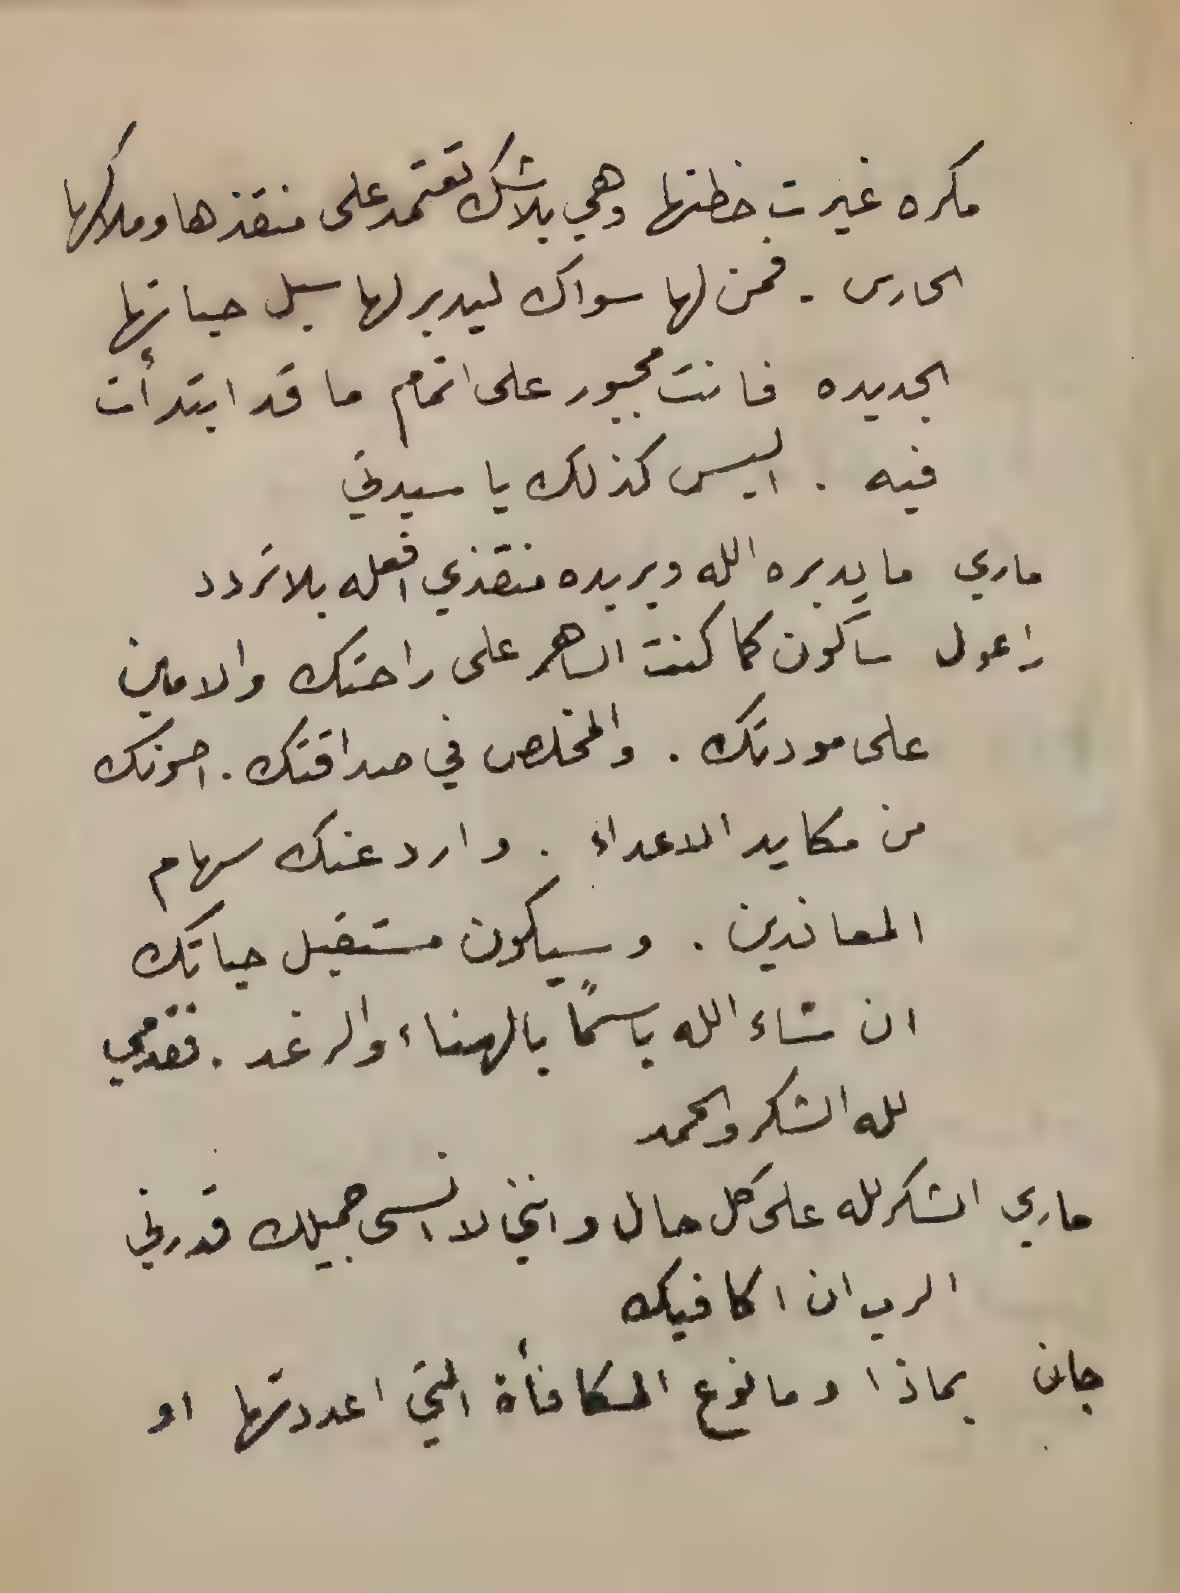 مكره غيرت خطتها وهي بلاشك تعتمد على منقذها وملاكها
الحارس . فمن لها سواك ليدبر لها سبل حياتها
الجديده فانت مجبور على اتمام ما قد ابتدأت
فيه . اليس كذلك يا سيدتي
ماري ما يدبره الله ويريده منقذي افعله بلا تردد
راعول ساكون كما كنت الساهر على راحتك والامين
على مودتك . والمخلص في صداقتك . اصونك
من مكايد الاعداء . وارد عنك سهام
المعاندين . وسيكون مستقبل حياتك
ان شاء الله باسمًا بالهناء والرغد . فقدمي
لله الشكر والحمد
ماري الشكر لله على كل حال وانني لا انسى جميلك قدرني
الرب ان اكافيك
جان بماذا وما نوع المكافأة التي اعددتها او